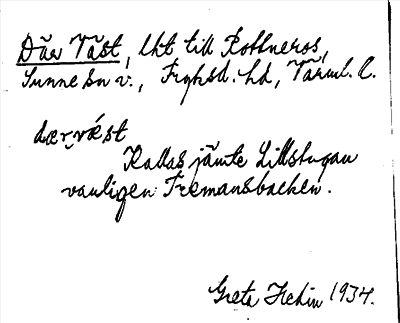 Där Väst, lht till Rottneros,
Sunne sn v., Fryksd. hd, Värml. l.
dær væ̀st
Kallas jämte Lillstugan
vanligen Fremansbacken.
Greta Hedin 1934.